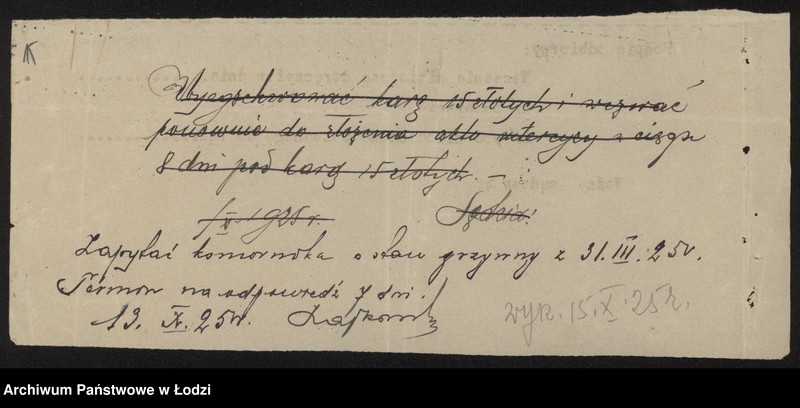 Wyegzekwować karę 15 złotych i wezwać
ponownie do złożenia aktu intercyzy w ciągu
8 dni pod karą 15 złotych. –
/X 1925 r. Sędzia:
Zapytać komornika o stan grzywny z 31.III.25r.
Termin na odpowiedź 7 dni.
13. X. 25r.
wyk. 15.X.25r.
Archiwum Państwowe w Łodzi